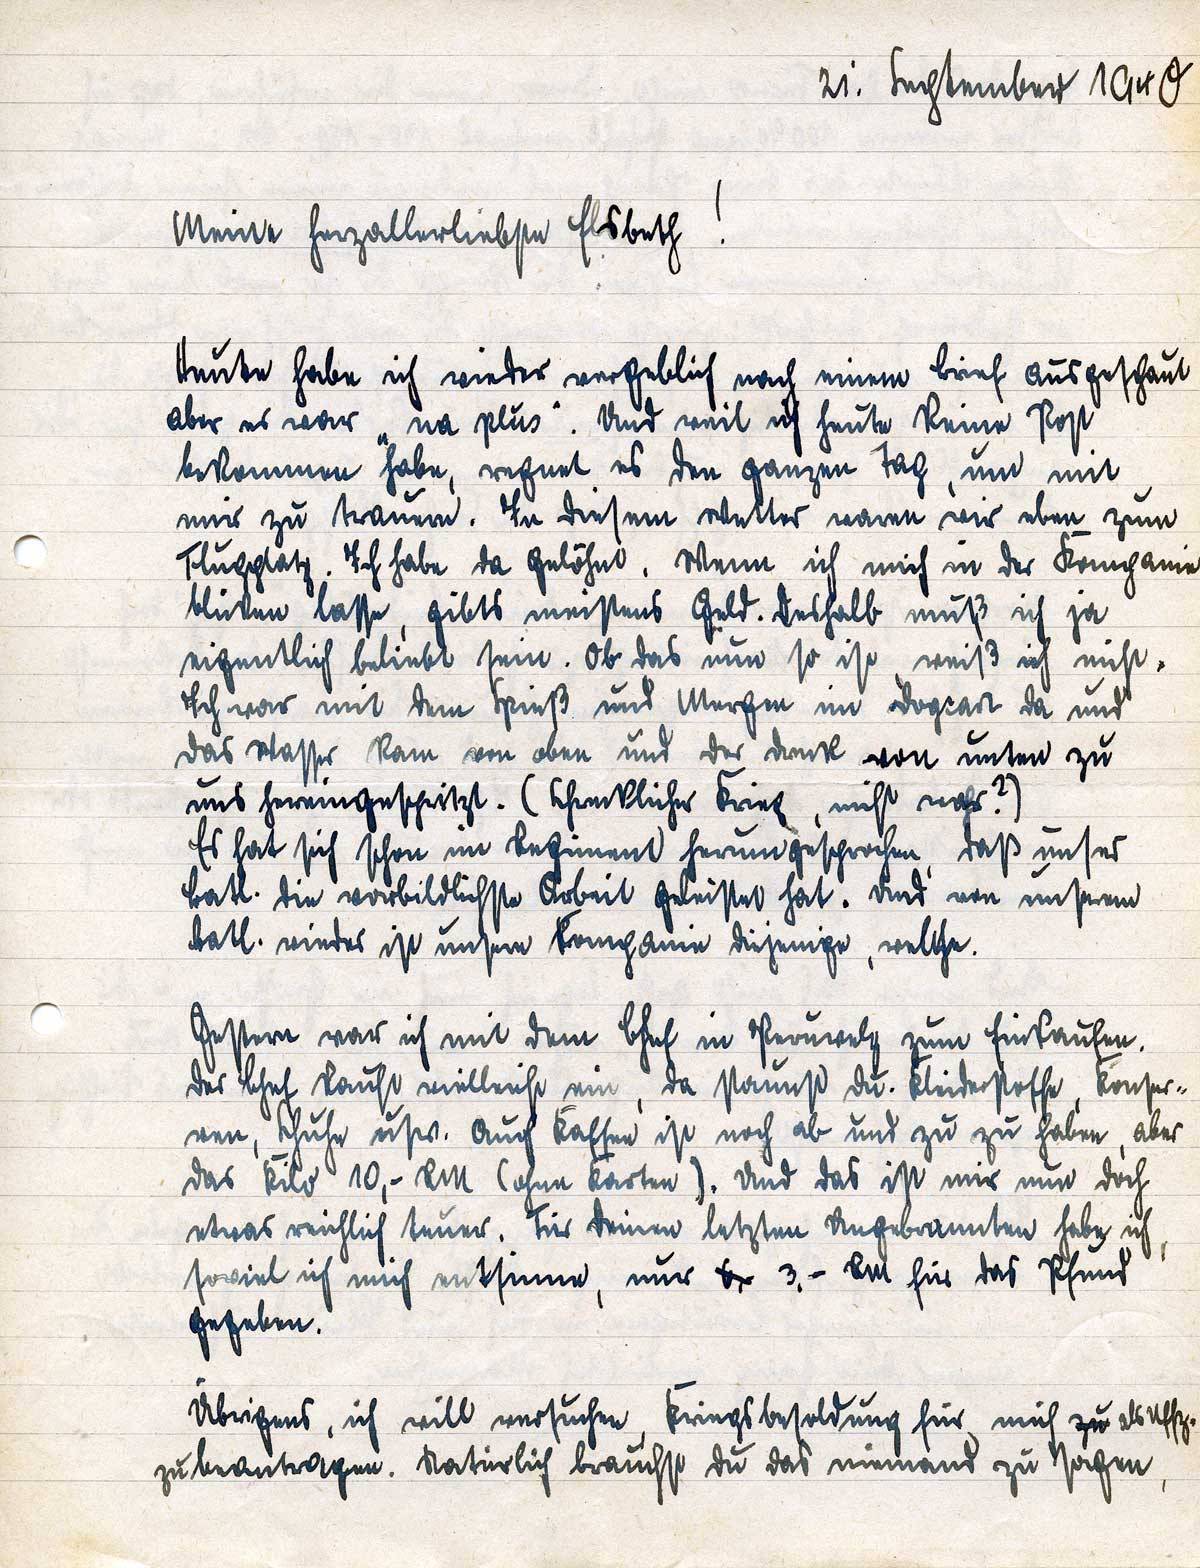 21. September 1940
Meine herzallerliebste Elsbeth!
Heute habe ich wieder vergeblich nach einem Brief ausgeschaut
aber es war „na plus“. Und weil ich heute keine Post
bekommen habe, regnet es den ganzen Tag, um mit
mir zu trauern. In diesem Wetter waren wir eben zum
Flugplatz. Ich habe da gelöhnt. Wenn ich mich in der Kompanie
blicken lasse, gibts meistens Geld. Deshalb muß ich ja
eigentlich beliebt sein. Ob das nun so ist, weiß ich nicht.
Ich war mit dem Spieß und Mergen im Dogcart da und
das Wasser kam von oben und der Dreck von unten zu
uns hereingespritzt. (Schrecklicher Krieg, nicht wahr?)
Es hat sich schon im Regiment herumgesprochen, daß unser
Batl. die vorbildlichste Arbeit geleistet hat. Und von unserem
Batl. wieder ist unsere Kompanie diejenige, welche.
Gestern war ich mit dem Chef in Peruwelz zum Einkaufen.
Der Chef kauft vielleicht ein, da staunst Du. Kleiderstoffe, Konser-
ven, Schuhe usw. Auch Kaffee ist noch ab und zu zu haben, aber
das Kilo 10,- RM (ohne Karten). Und das ist mir nun doch
etwas reichlich teuer. Für Deinen letzten Ungebrannten habe ich,
soviel ich mich entsinne, nur 3,- RM für das Pfund
gegeben.
Übrigens, ich will versuchen, Kriegsbesoldung für mich zu als Uffz.
zu beantragen. Natürlich brauchst Du das niemand zu sagen,